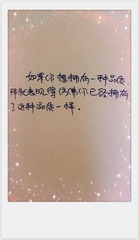 如果你想拥有一种品质
那就表现得仿佛你已经拥有
了这种品质一样.